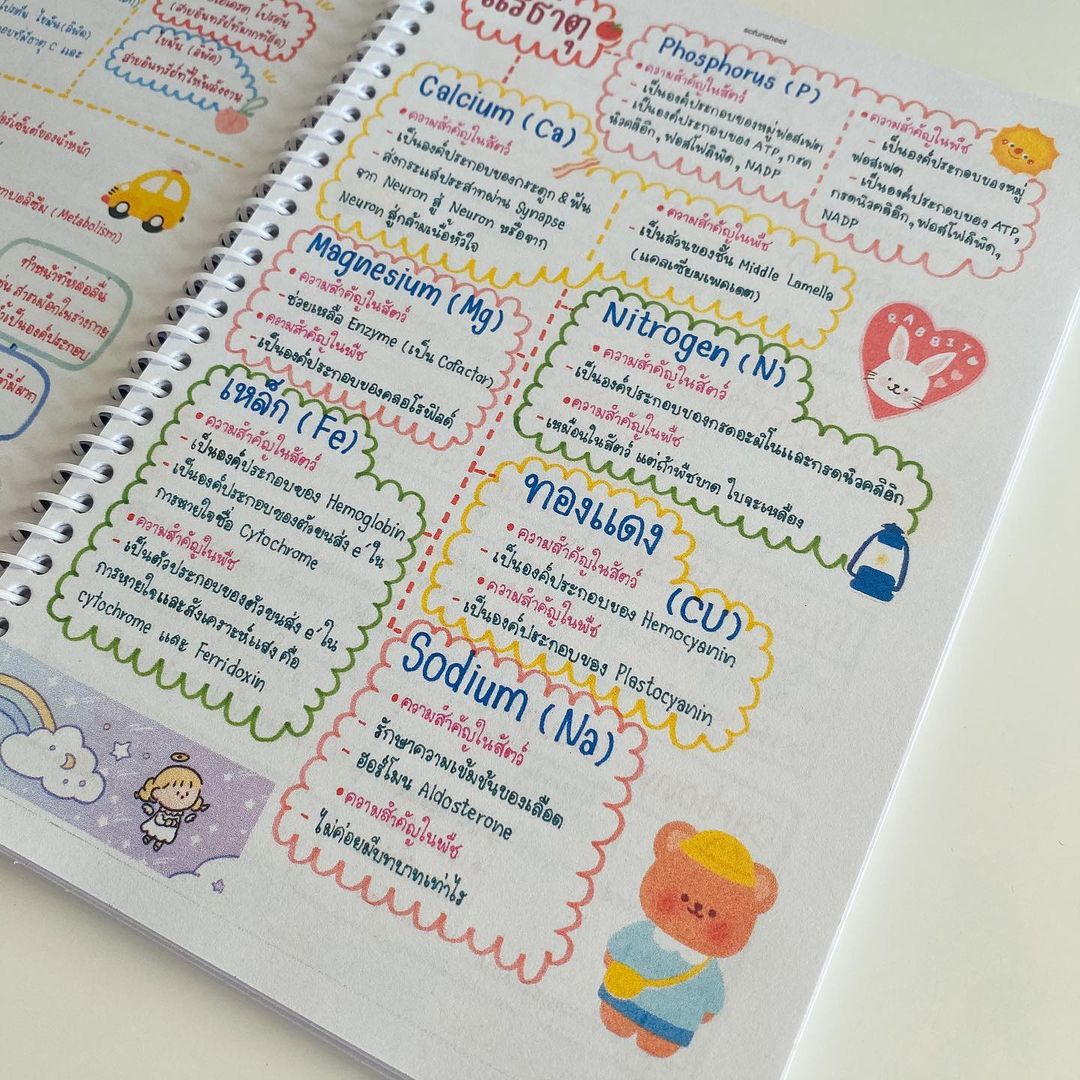 โปรตีน
(สารอินทรีย์ที่มากที่สุด)
โปรตีน ไขมัน(ลิพิด)
ไขมัน (ลิพิด)
สารอินทรีย์ที่ให้พลังงาน
(Metabolism)
ทำหน้าที่หล่อลื่น
แร่ธาตุ
sofunsheet
Phosphorus (P)
•ความสำคัญในสัตว์
- เป็นองค์ประกอบของหมู่ฟอสเฟต
- เป็นองค์ประกอบของ ATP, กรด
นิวคลิอิก, ฟอสโฟลิพิด, NADP
•ความสำคัญในพืช
- เป็นองค์ประกอบของหมู่
ฟอสเฟต
-เป็นองค์ประกอบของ ATP,
กรดนิวคลิอิก, ฟอสโฟลิพิด,
NADP
Calcium (Ca)
•ความสำคัญในสัตว์
- เป็นองค์ประกอบของกระดูก & ฟัน
- ส่งกระแสประสาทผ่าน Synapse
จาก Neuron สู่ Neuron หรือจาก
Neuron สู่กล้ามเนื้อหัวใจ
•ความสำคัญในพืช
- เป็นส่วนของชั้น Middle Lamella
(แคลเซียมเพคเตต)
Magnesium (Mg)
•ความสำคัญในสัตว์
-ช่วยเหลือ Enzyme (เป็น Cofactor)
•ความสำคัญในพืช
-เป็นองค์ประกอบของคลอโรฟิลล์
Nitrogen (N)
•ความสำคัญในสัตว์
-เป็นองค์ประกอบของกรดอะมิโนและกรดนิวคลิอิก
•ความสำคัญในพืช
- เหมือนในสัตว์ แต่ถ้าพืชขาด ใบจะเหลือง
RABBIT
เหล็ก (Fe)
•ความสำคัญในสัตว์
-เป็นองค์ประกอบของ Hemoglobin
-เป็นองค์ประกอบของตัวขนส่ง e⁻ ใน
การหายใจชื่อ Cytochrome
•ความสำคัญในพืช
- เป็นตัวประกอบของตัวขนส่ง e⁻ ใน
การหายใจและสังเคราะห์แสง คือ
cytochrome และ Ferridoxin
ทองแดง (CU)
•ความสำคัญในสัตว์
- เป็นองค์ประกอบของ Hemocyanin
•ความสำคัญในพืช
- เป็นองค์ประกอบของ Plastocyanin
Sodium (Na)
•ความสำคัญในสัตว์
- รักษาความเข้มข้นของเลือด
- ฮอร์โมน Aldosterone
•ความสำคัญในพืช
- ไม่ค่อยมีบทบาทเท่าไร